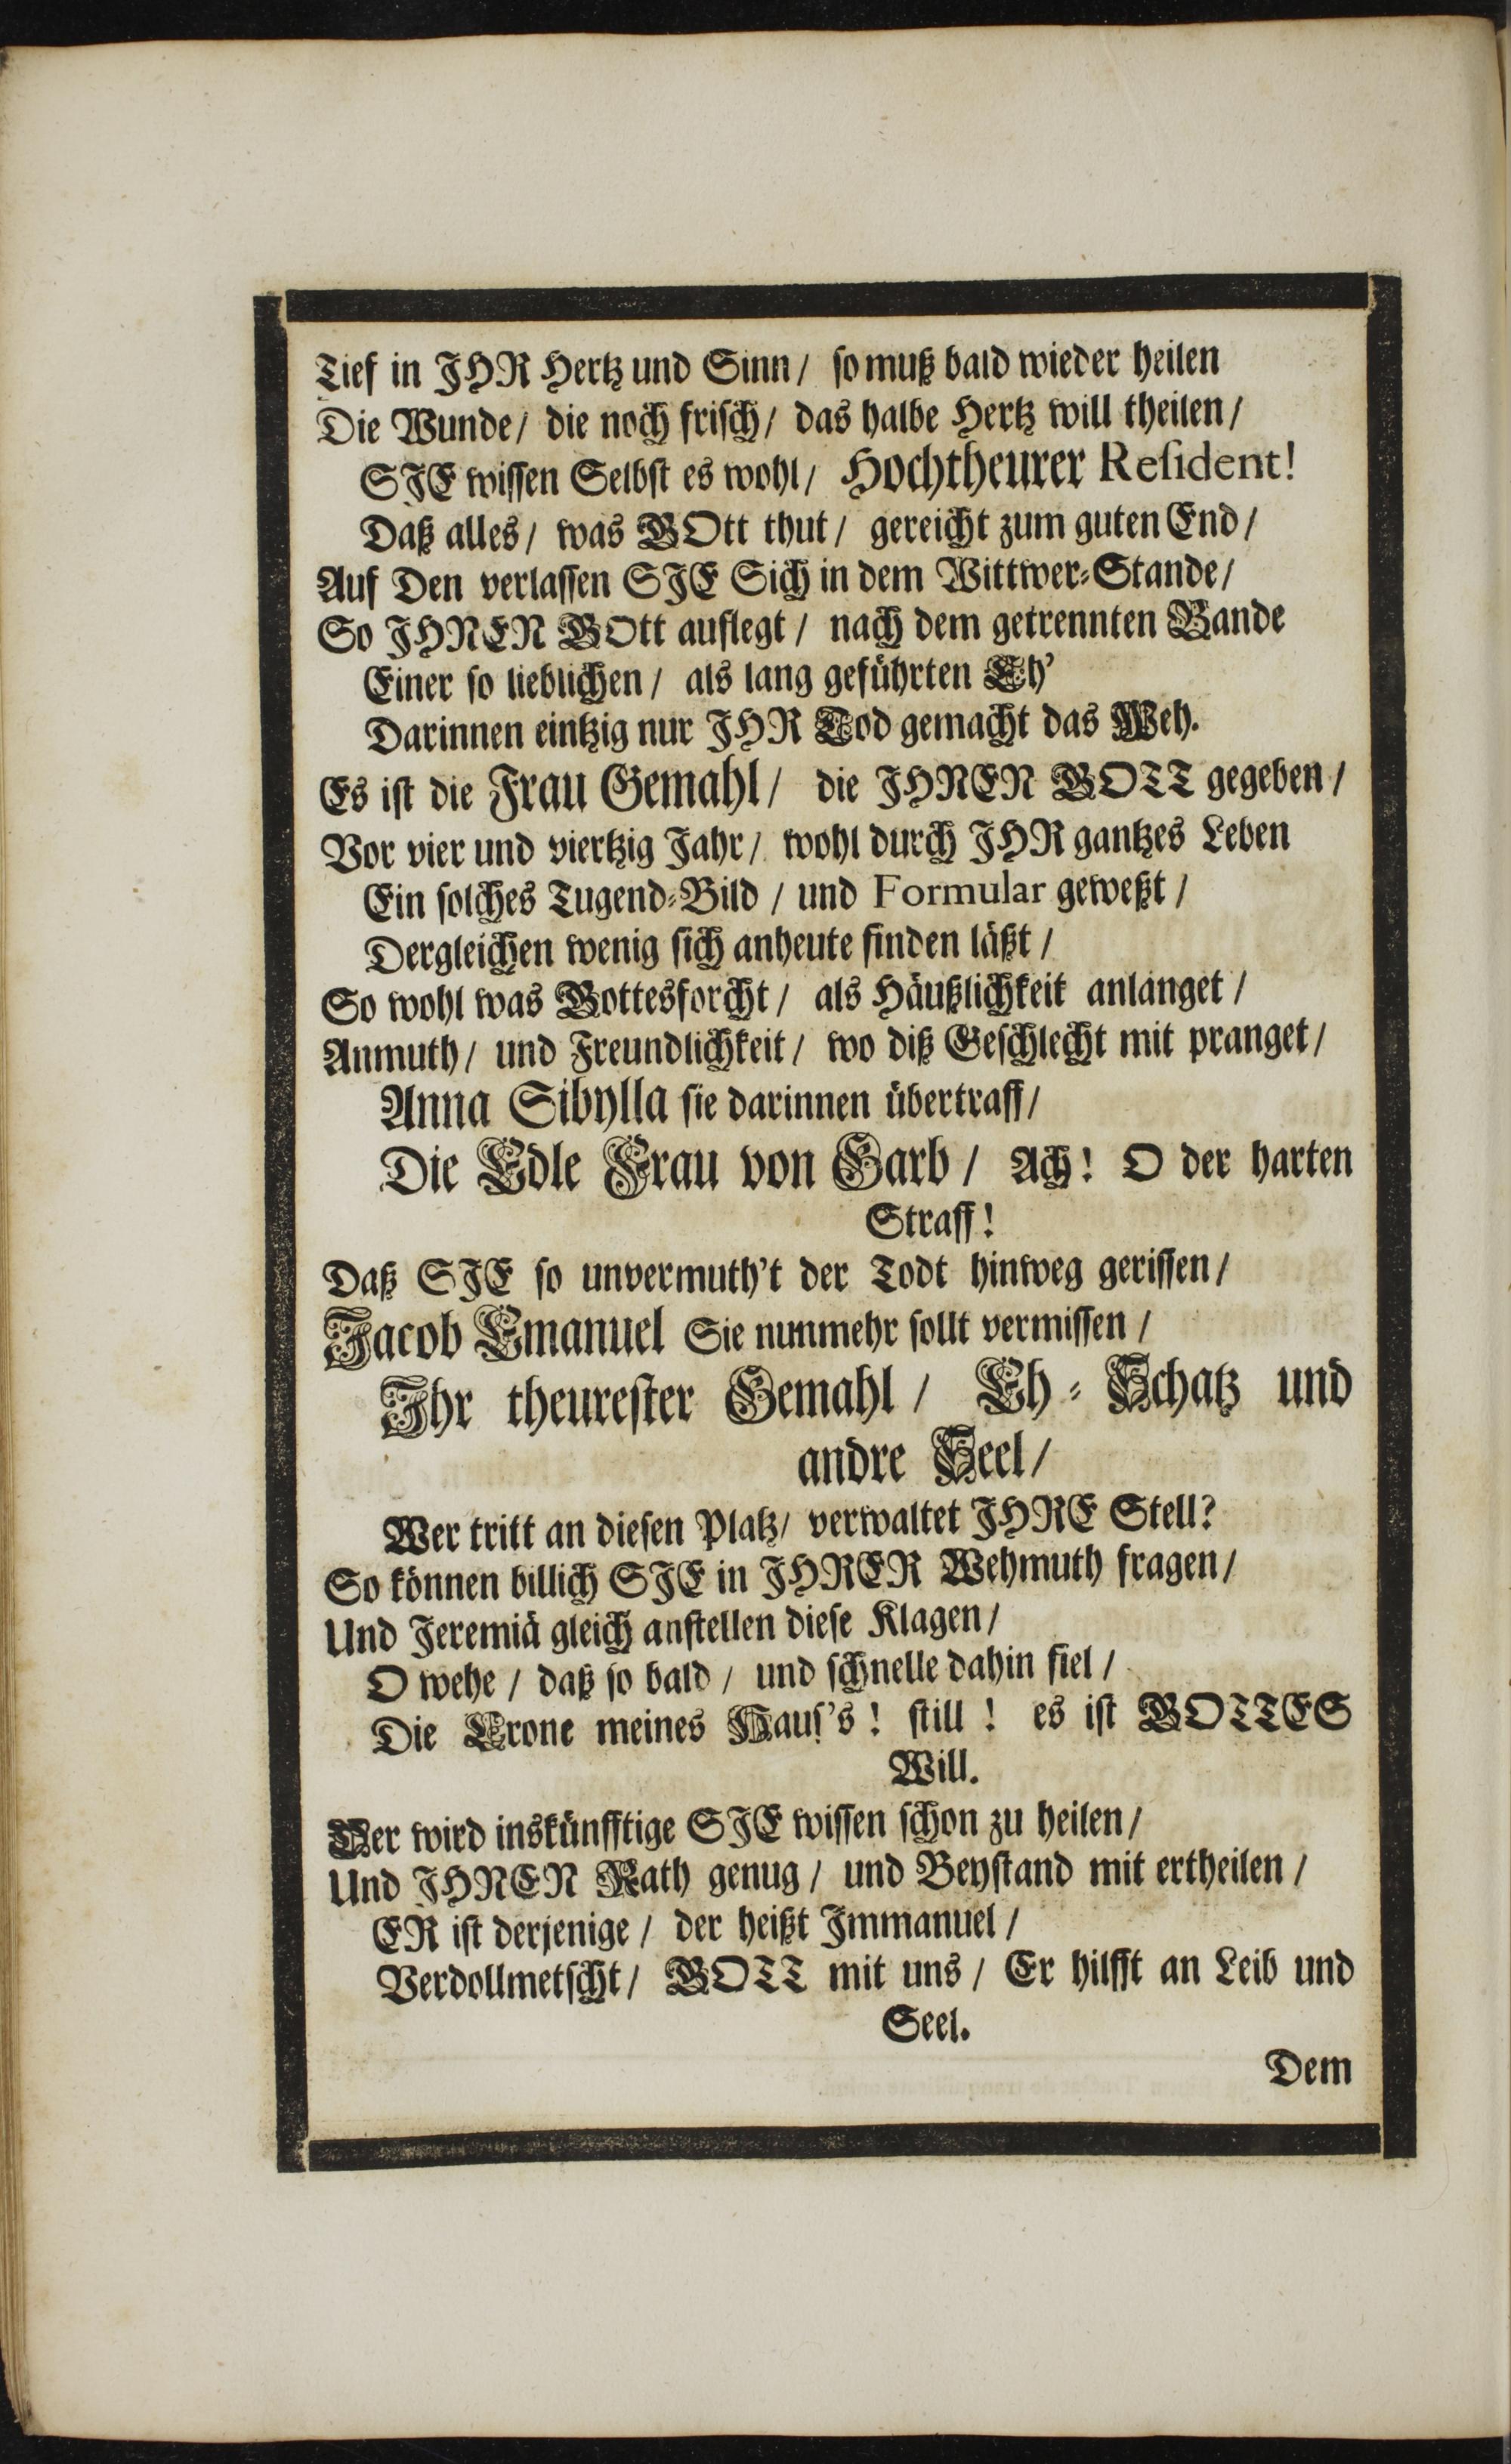 Tief in JHR Hertz und Sinn / so muß bald wieder heilen
Die Wunde / die noch frisch / das halbe Hertz will theilen /
SJE wissen Selbst es wohl / Hochtheurer Resident!
Daß alles / was GOtt thut / gereicht zum guten End /
Auf Den verlassen SJE Sich in dem Wittwer-Stande /
So JHNEN GOtt auflegt / nach dem getrennten Bande
Einer so lieblichen / als lang geführten Eh'
Darinnen eintzig nur JHR Tod gemacht das Weh.
Es ist die Frau Gemahl / die JHNEN GOTT gegeben /
Vor vier und viertzig Jahr / wohl durch JHR gantzes Leben
Ein solches Tugend-Bild / und Formular geweßt /
Dergleichen wenig sich anheute finden läßt /
So wohl was Gottesforcht / als Häußlichkeit anlanget /
Anmuth / und Freundlichkeit / wo diß Geschlecht mit pranget /
Anna Sibylla sie darinnen übertraff /
Die Edle Frau von Garb / Ach! O der harten
Straff!
Daß SJE so unvermuth't der Todt hinweg gerissen /
Jacob Emanuel Sie nunmehr sollt vermissen /
Jhr theurester Gemahl / Eh-Schatz und
andre Seel /
Wer tritt an diesen Platz / verwaltet JHRE Stell?
So können billich SJE in JHRER Wehmuth fragen /
Und Jeremiä gleich anstellen diese Klagen /
O wehe / daß so bald / und schnelle dahin fiel /
Die Crone meines Haus's! still! es ist GOTTES
Will.
Der wird inskünfftige SJE wissen schon zu heilen /
Und JHNEN Rath genug / und Beystand mit ertheilen /
ER ist derjenige / der heißt Jmmanuel /
Verdollmetscht / GOTT mit uns / Er hilfft an Leib und
Seel.
Dem